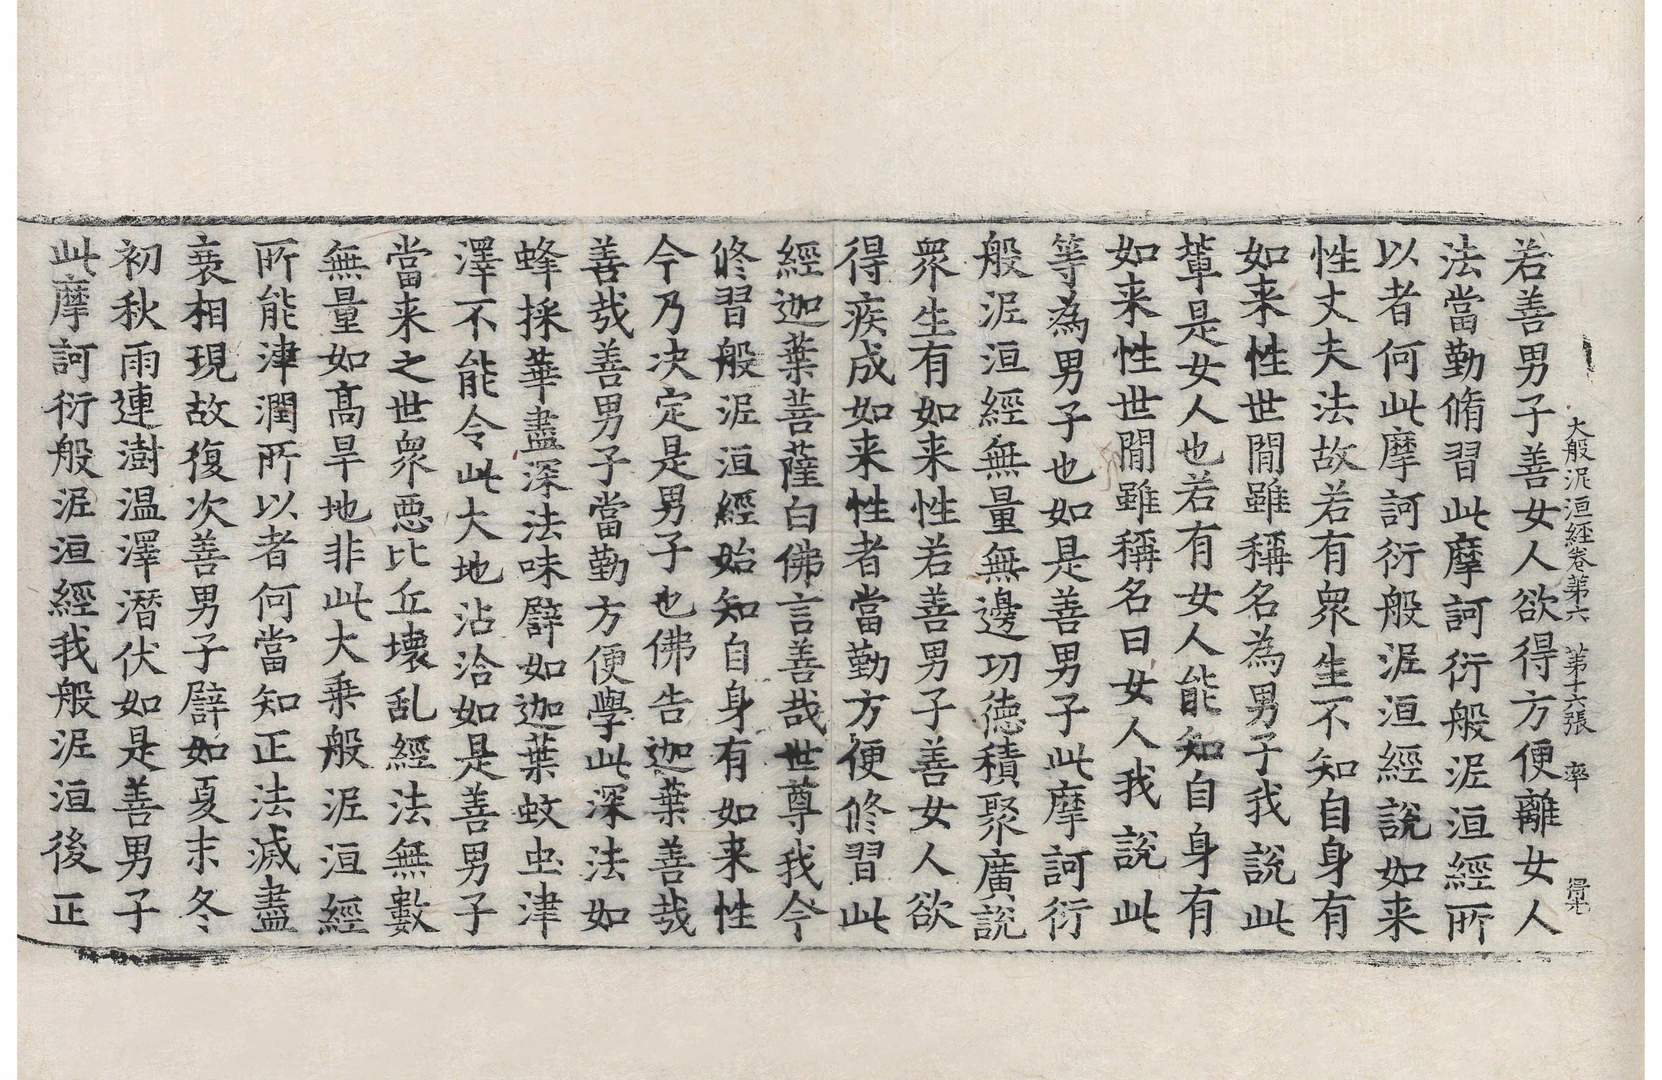 大般泥洹經卷第六 第十六張 率
若善男子善女人欲得方便離女人
法當勤脩習此摩訶衍般泥洹經所
以者何此摩訶衍般泥洹經說如来
性丈夫法故若有衆生不知自身有
如来性世間雖稱名為男子我說此
軰是女人也若有女人能知自身有
如来性世間雖稱名曰女人我說此
等為男子也如是善男子此摩訶衍
般泥洹經無量無邊功徳積聚廣說
衆生有如来性若善男子善女人欲
得疾成如来性者當勤方便修習此
經迦葉菩薩白佛言善哉世尊我今
修習般泥洹經始知自身有如来性
今乃决定是男子也佛告迦葉善哉
善哉善男子當勤方便學此深法如
蜂採華盡深法味譬如迦葉蚊虫津
澤不能令此大地沾洽如是善男子
當来之世衆惡比丘壞乱經法無數
無量如髙旱地非此大乘般泥洹經
所能津潤所以者何當知正法滅盡
衰相現故復次善男子譬如夏末冬
初秋雨連澍温澤潛伏如是善男子
此摩訶衍般泥洹經我般泥洹後正